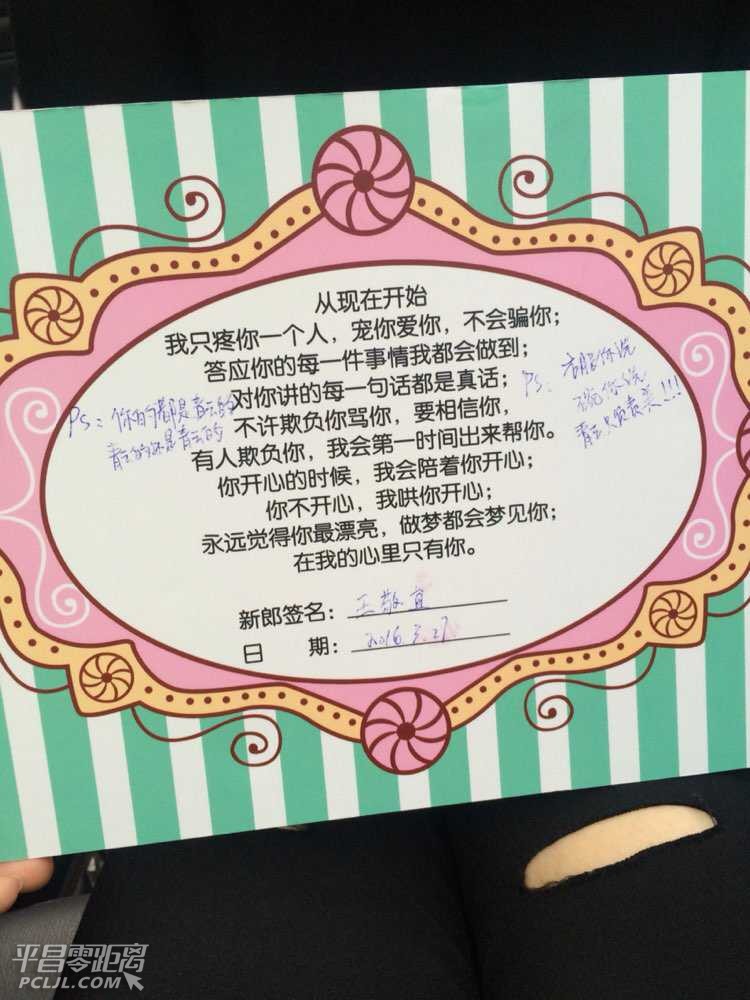 从现在开始
我只疼你一个人，宠你爱你，不会骗你；
答应你的每一件事情我都会做到；
对你讲的每一句话都是真话；
不许欺负你骂你，要相信你，
有人欺负你，我会第一时间出来帮你。
你开心的时候，我会陪着你开心；
你不开心，我哄你开心；
永远觉得你最漂亮，做梦都会梦见你；
在我的心里只有你。
PS：你的都是青云的
青云的还是青云的
PS：衣服你洗
碗你洗
青云负责美!!!
新郎签名：王敬宜
日 期：2016.3.27
平昌零距离
PCLJL.COM